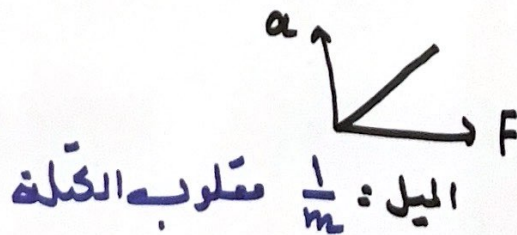 a
F
الميل : 1/m مقلوب الكتلة